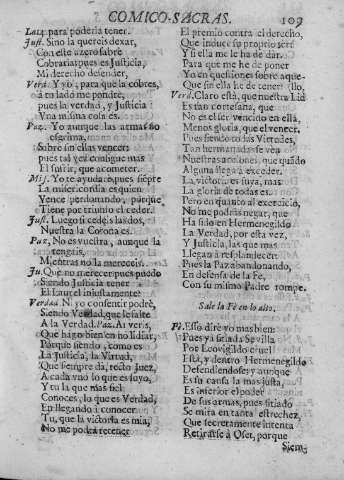 COMICO-SACRAS. 109
Luz. para poderla tener.
Just. Sino la quereis dexar,
Con este azero sabre
Cobrarla: pues es Justicia,
Mi derecho defender,
Verd. Y yo, para que la cobres,
à tu lado me pondre,
pues la verdad, y Justicia
Vna misma cosa es.
Paz. Yo aunque las armas no
esgrima,
Sabre sin ellas vencer:
pues tal vez consigue mas
El sufrir, que acometer.
Mis. Yo te ayuda: pues siẽpre
La misericordia es quien
Vence perdonando, porque
Tiene por triunfo el ceder.
Just. Luego si cedeis las dos,
Nuestra la Corona es.
Paz, No es vuestra, aunque la
tengais,
Mientras no la mereceis.
Ju. Que no merecer puedo
Siendo Justicia tener
El laurel injustamente?
Verdad Ni yo consentir podrè,
Siendo Verdad, que le falte
A la Verdad. Paz. Ai vereis,
Que hago bien en no lidiar,
Porque siendo, como es
La Justicia, la Virtud,
Que siempre da, recto Juez,
A cada vno lo que es suyo,
Y tu la que mas fiel
Conoces, lo que es Verdad,
En llegando à conocer
Tu, que la victoria es mia,
No me podrà retener
El premio contra el derecho,
Que induce su proprio ser:
Y si ella me le ha de dar,
Para que me he de poner
Yo en questiones sobre aque-
Que sin ella he de tener? (llo,
Verd. Claro està, que nuestra Lid
Es tan cortesana, que
No es el ser vencido en ella,
Menos gloria, que el vencer.
Pues siendo todas Virtudes,
Tan hermanadas se ven
Nuestras acciones, que quãdo
Alguna llega à exceder,
La victoria es suya, mas
La gloria de todas es.
Pero en quanto al exercicio,
No me podràs negar, que
Ha sido en Hermenegildo
La Verdad, por esta vez,
Y Justicia, las que mas
Llegan à resplandecer:
Pues la Paz abandonando,
En defensa de la Fe,
Con su mismo Padre rompe.
Sale la Fe en lo alto.
Fè. Esso dirè yo mas bien:
Pues ya sitiada Sevilla
Por Leovigildo cruel
Està, y dentro Hermenegildo
Defendiendose; y aunque
Es su causa la mas justa,
Es inferior el poder
De sus armas, pues sitiado
Se mira en tanta estrechez,
Que secretamente intenta
Retirarse à Oset, porque
Siem-